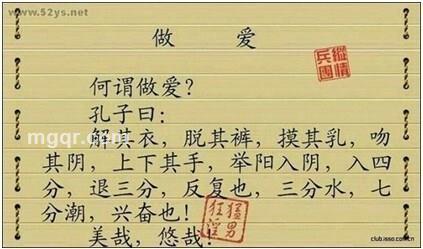 www.52ys.net
做 爱
纵情
兵团
何谓做爱?
孔子曰:
mgqr.com
解其衣，脱其裤，摸其乳，吻
其阴，上下其手，举阳入阴，入四
分，退三分，反复也，三分水，七
分潮，兴奋也!
美哉，悠哉!
猛男
狂淫
club.isso.com.cn